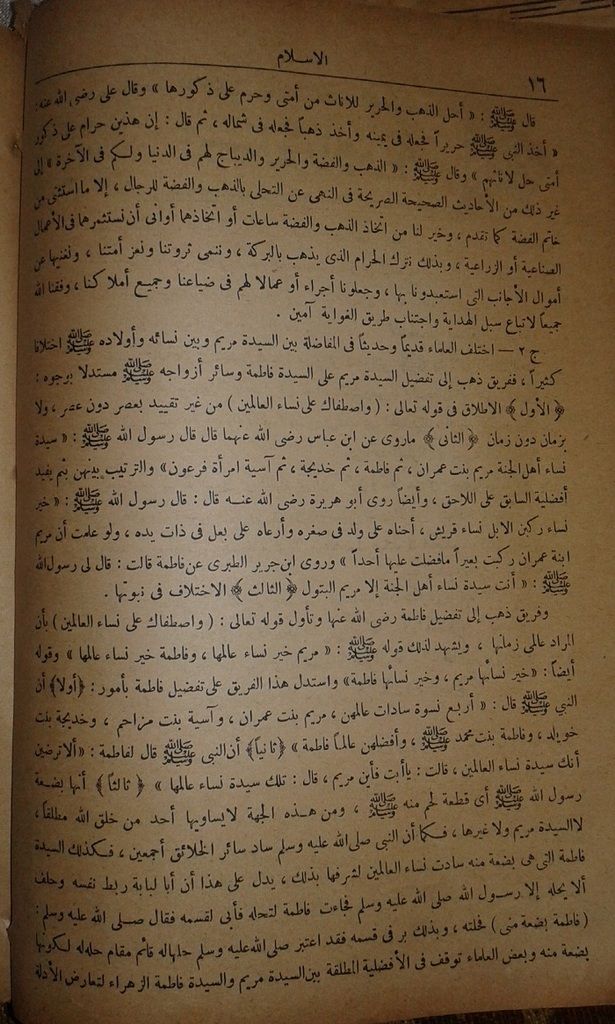 الاسلام
١٦
قال ﷺ : « أحل الذهب والحرير للاناث من أمتى وحرم على ذكورها » وقال على رضى الله عنه:
« أخذ النبى ﷺ حريراً فجعله فى يمينه وأخذ ذهباً فجعله فى شماله ، ثم قال : إن هذين حرام على ذكور
أمتى حل لاناثهم » وقال ﷺ : « الذهب والفضة والحرير والديباج لهم فى الدنيا ولكم فى الآخرة » إلى
غير ذلك من الأحاديث الصحيحة الصريحة فى النهى عن التحلى بالذهب والفضة للرجال ، إلا ما استثنى من
خاتم الفضة كما تقدم ، وخير لنا من اتخاذ الذهب والفضة ساعات أو اتخاذهما أوانى أن نستثمرهما فى الأعمال
الصناعية أو الزراعية ، وبذلك نترك الحرام الذى يذهب بالبركة ، وننمى ثروتنا ونعز أمتنا ، ونغنيها عن
أموال الأجانب التى استعبدونا بها ، وجعلونا أجراء أو عمالا لهم فى ضياعنا وجميع أملاكنا ، وفقنا الله
جميعاً لاتباع سبل الهداية واجتناب طريق الغواية آمين .
ج ٢ — اختلف العلماء قديماً وحديثاً فى المفاضلة بين السيدة مريم وبين نسائه وأولاده ﷺ اختلافا
كثيراً ، ففريق ذهب إلى تفضيل السيدة مريم على السيدة فاطمة وسائر أزواجه ﷺ مستدلا بوجوه :
﴿ الأول ﴾ الاطلاق فى قوله تعالى : ( واصطفاك على نساء العالمين ) من غير تقييد بعصر دون عصر ، ولا
بزمان دون زمان ﴿ الثانى ﴾ ماروى عن ابن عباس رضى الله عنهما قال قال رسول الله ﷺ : « سيدة
نساء أهل الجنة مريم بنت عمران ، ثم فاطمة ، ثم خديجة ، ثم آسية امرأة فرعون » والترتيب بينهن بثم يفيد
أفضلية السابق على اللاحق ، وأيضاً روى أبو هريرة رضى الله عنه قال : قال رسول الله ﷺ : « خير
نساء ركبن الابل نساء قريش ، أحناه على ولد فى صغره وأرعاه على بعل فى ذات يده ، ولو علمت أن مريم
ابنة عمران ركبت بعيراً مافضلت عليها أحداً » وروى ابن جرير الطبرى عن فاطمة قالت : قال لى رسول الله
ﷺ : « أنت سيدة نساء أهل الجنة إلا مريم البتول ﴿ الثالث ﴾ الاختلاف فى نبوتها .
وفريق ذهب إلى تفضيل فاطمة رضى الله عنها وتأول قوله تعالى : ( واصطفاك على نساء العالمين ) بأن
المراد عالمى زمانها ، ويشهد لذلك قوله ﷺ : « مريم خير نساء عالمها ، وفاطمة خير نساء عالمها » وقوله
أيضاً : « خير نسائها مريم ، وخير نسائها فاطمة » واستدل هذا الفريق على تفضيل فاطمة بأمور : ﴿أولا﴾ أن
النبى ﷺ قال : « أربع نسوة سادات عالمهن ، مريم بنت عمران ، وآسية بنت مزاحم ، وخديجة بنت
خويلد ، وفاطمة بنت محمد ﷺ ، وأفضلهن عالماً فاطمة » ﴿ثانياً﴾ أن النبى ﷺ قال لفاطمة : « ألا ترضين
أنك سيدة نساء العالمين ، قالت : ياأبت فأين مريم ، قال : تلك سيدة نساء عالمها » ﴿ ثالثاً ﴾ أنها بضعة
رسول الله ﷺ أى قطعة لحم منه ﷺ ، ومن هذه الجهة لايساويها أحد من خلق الله مطلقاً ،
لاالسيدة مريم ولا غيرها ، فكما أن النبى صلى الله عليه وسلم ساد سائر الخلائق أجمعين ، فكذلك السيدة
فاطمة التى هى بضعة منه سادت نساء العالمين لشرفها بذلك ، يدل على هذا أن أبا لبابة ربط نفسه وحلف
ألا يحله إلا رسول الله صلى الله عليه وسلم فجاءت فاطمة لتحله فأبى لقسمه فقال صلى الله عليه وسلم :
( فاطمة بضعة منى ) فحلته ، وبذلك بر فى قسمه فقد اعتبر صلى الله عليه وسلم حلها له قائم مقام حله له لكونها
بضعة منه وبعض العلماء توقف فى الأفضلية المطلقة بين السيدة مريم والسيدة فاطمة الزهراء لتعارض الأدلة